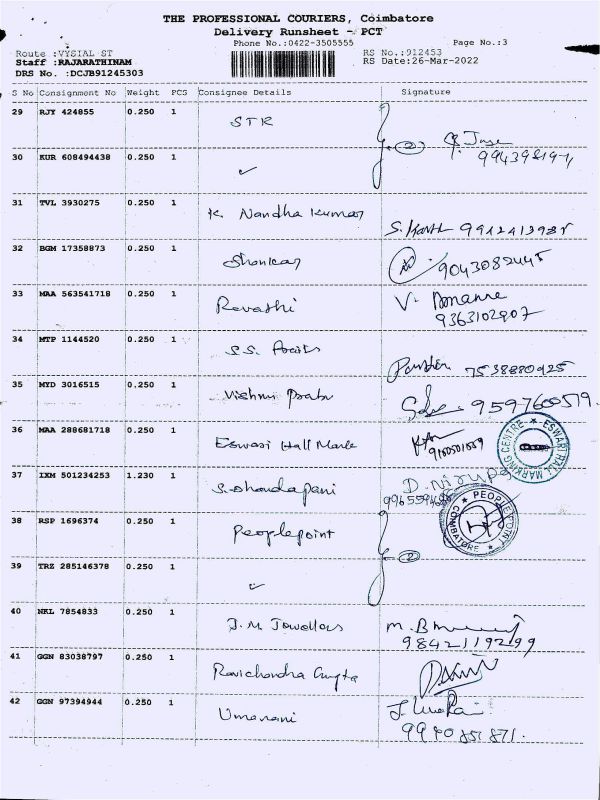 THE PROFESSIONAL COURIERS, Coimbatore
Delivery Runsheet - PCT
Phone No.:0422-3505555 Page No.:3
Route :VYSIAL ST RS No.:912453
Staff :RAJARATHINAM RS Date:26-Mar-2022
DRS No. :DCJB91245303
S No Consignment No Weight PCS Consignee Details Signature
29 RJY 424855 0.250 1 STR
30 KUR 608494438 0.250 1 ✓
31 TVL 3930275 0.250 1 K. Nandha Kumar
32 BGM 17358873 0.250 1 Shankar 9043082445
33 MAA 563541718 0.250 1 Revathi V.
9363102907
34 MTP 1144520 0.250 1 S.S.
7538880425
35 MYD 3016515 0.250 1 Vishnu Prabu 9597600579
36 MAA 288681718 0.250 1 Eswari Hall Mark
ESWARI HALL MARKING CENTRE
37 IXM 501234253 1.230 1 D. Nirupa
38 RSP 1696374 0.250 1 Peoplepoint (2)
PEOPLE POINT
COIMBATORE
39 TRZ 285146378 0.250 1 ✓
40 NKL 7854833 0.250 1 J.M. Jewellers M.
9842119299
41 GGN 83038797 0.250 1 Ravichandra Gupta
42 GGN 97394944 0.250 1 Umarani
9940851871.